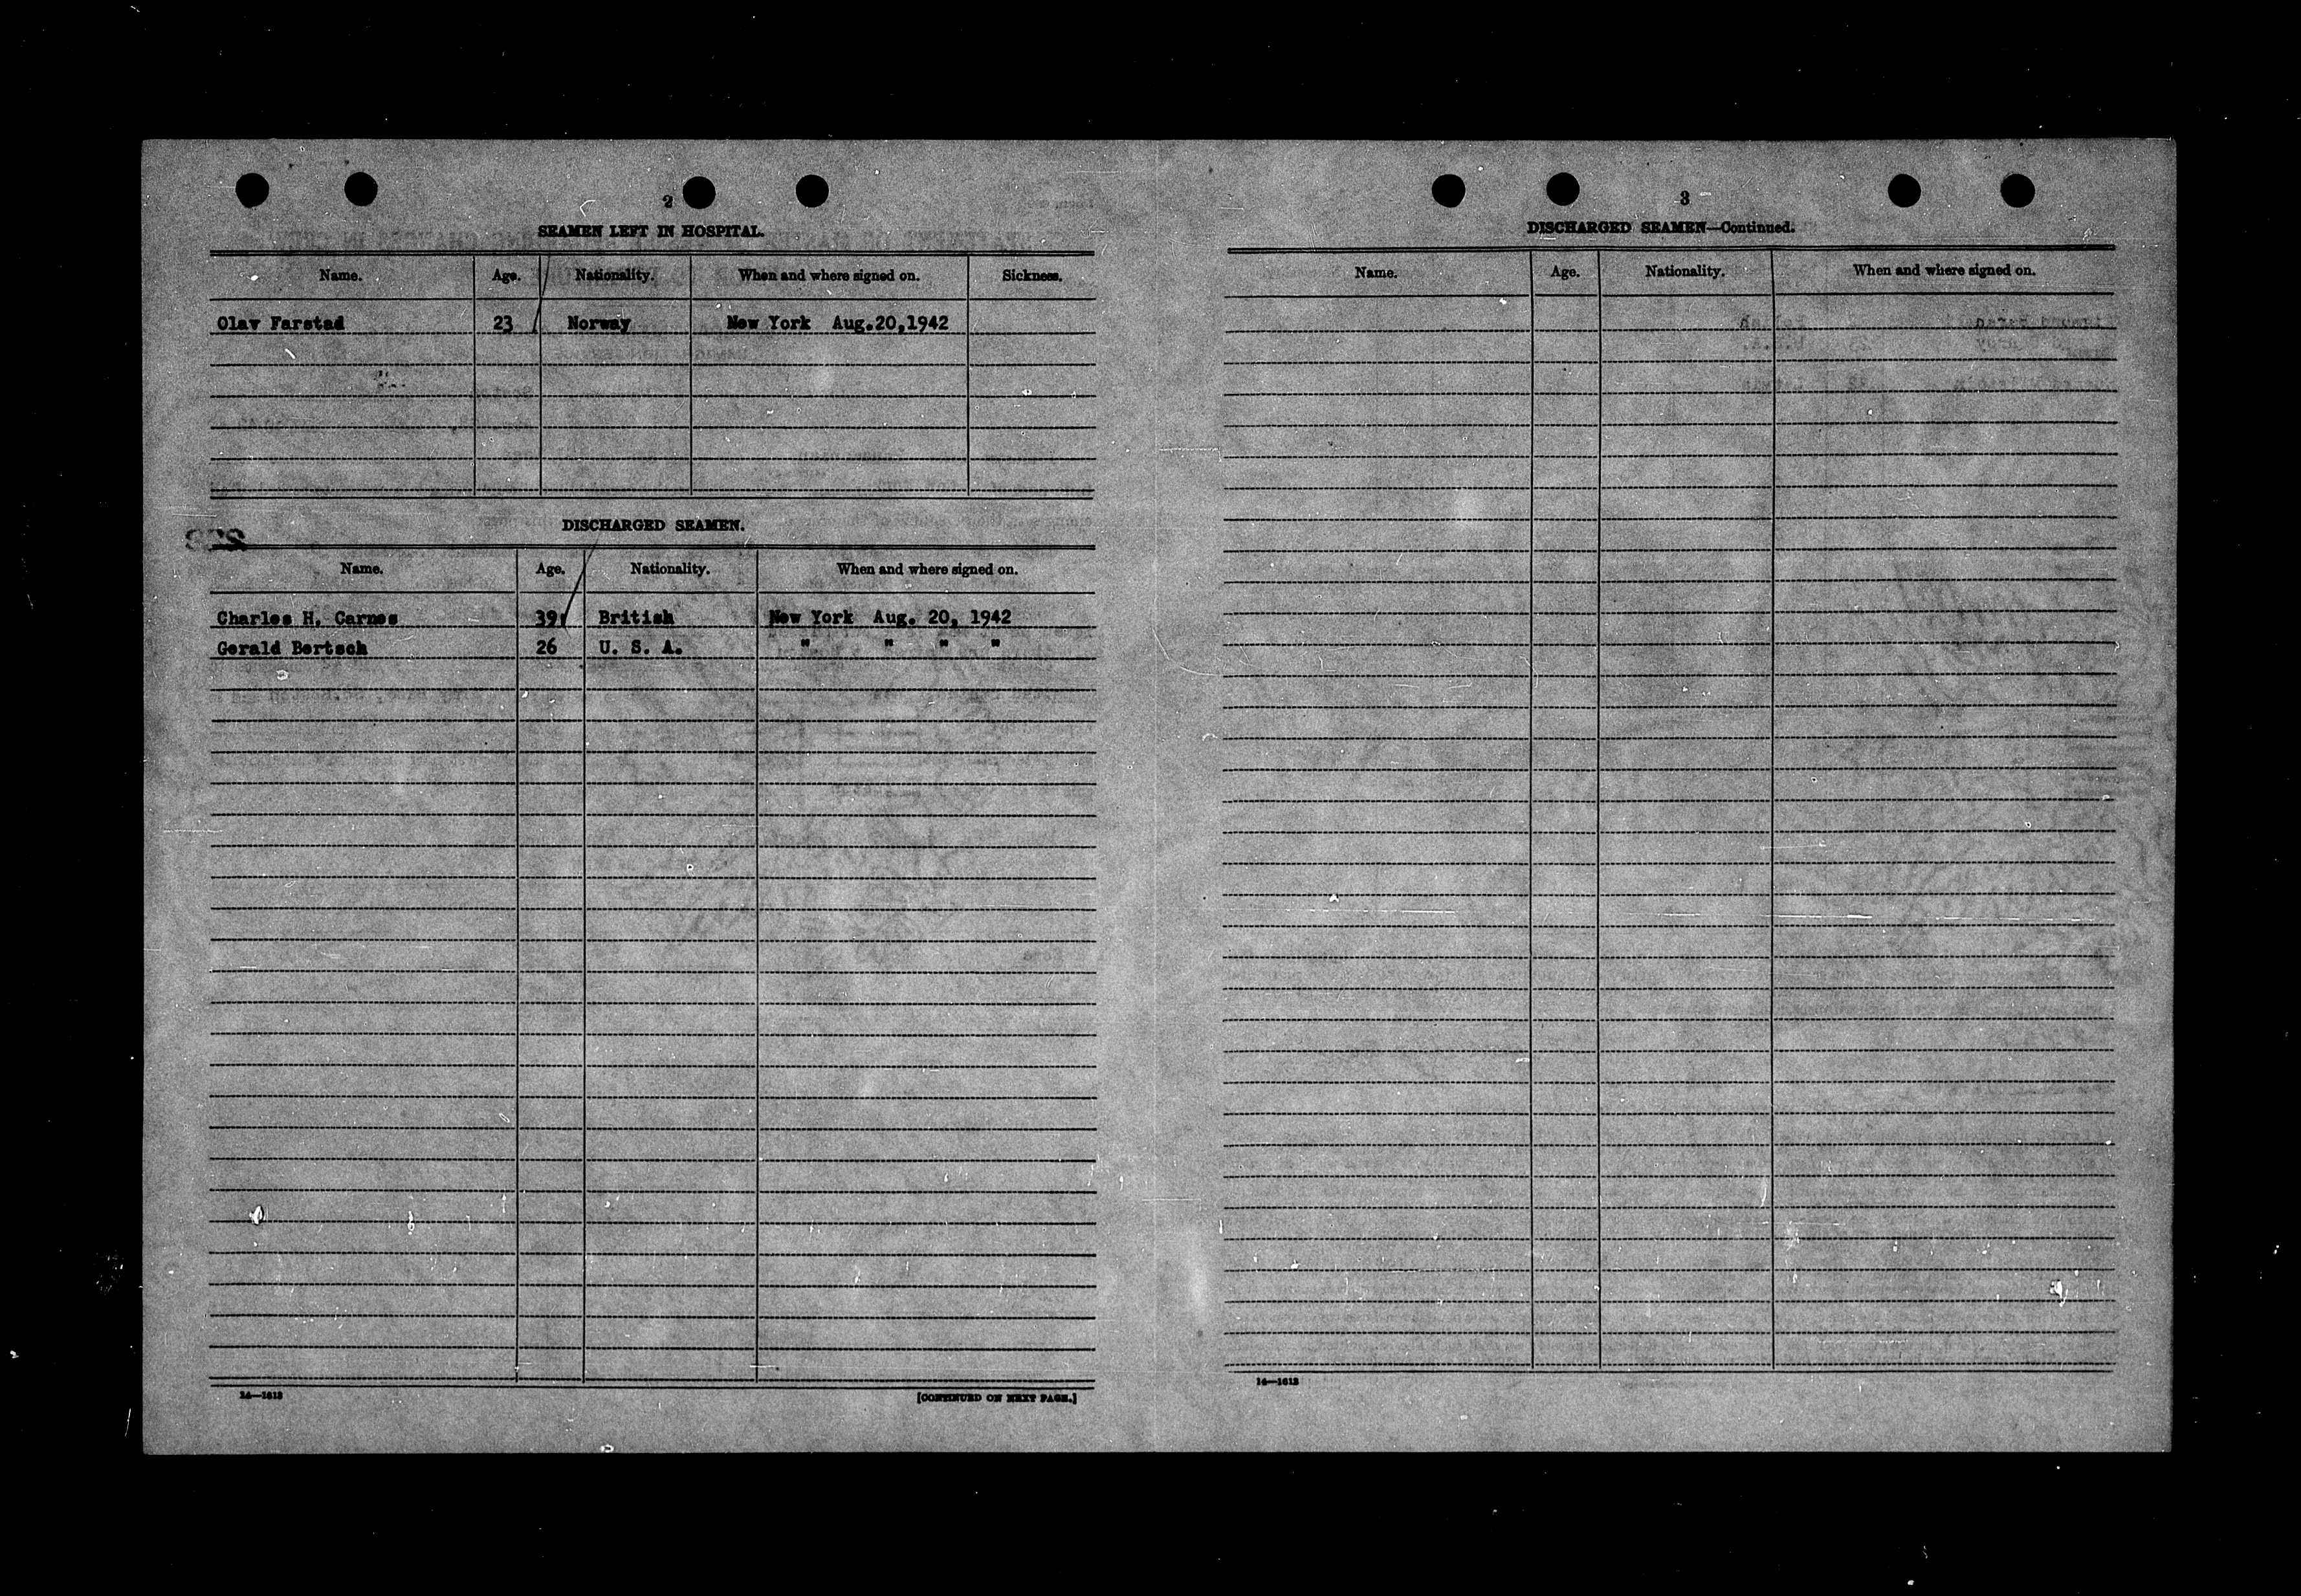 2
SEAMEN LEFT IN HOSPITAL.
Name. Age. Nationality. When and where signed on. Sickness.
Olav Farstad 23 Norway New York Aug.20,1942
DISCHARGED SEAMEN.
Name. Age. Nationality. When and where signed on.
Charles H. Carnes 39 British New York Aug. 20, 1942
Gerald Bertsch 26 U. S. A. " " " "
14—1613
[CONTINUED ON NEXT PAGE.]
3
DISCHARGED SEAMEN—Continued.
Name. Age. Nationality. When and where signed on.
14—1613